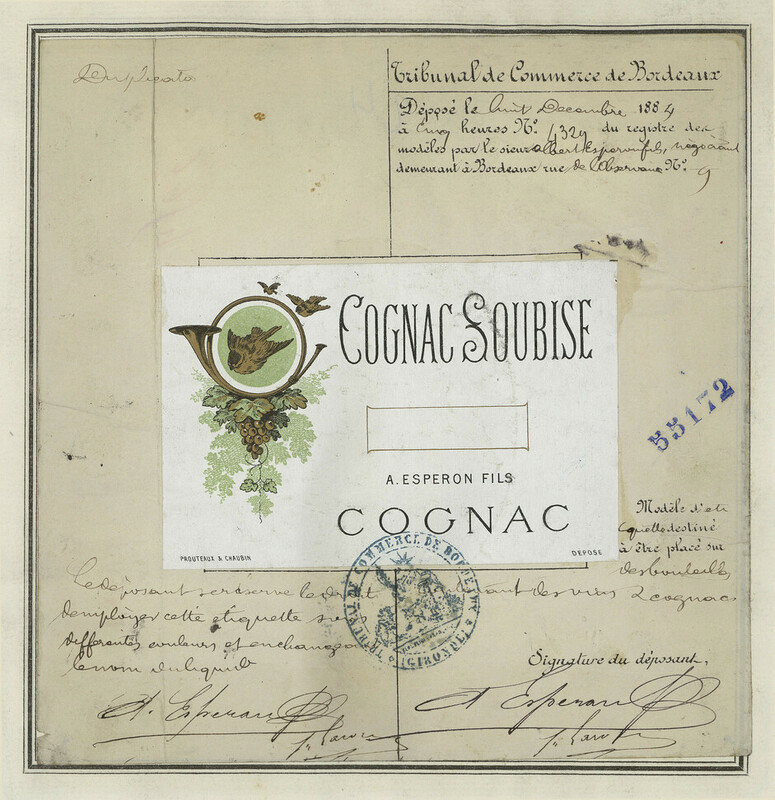 Duplicata
Tribunal de Commerce de Bordeaux
Déposé le huit Decembre 1884
à Cinq heures Nº. 4324 du registre des
modèles par le sieur Albert Esperon fils, négociant
demeurant à Bordeaux rue de l'Observance Nº. 9
COGNAC SOUBISE
55172
A. ESPERON FILS
COGNAC
PROUTEAUX & CHAUBIN
DEPOSE
Modèle d'eti
quette destiné
à être placé sur
des bouteilles
TRIBUNAL DE COMMERCE DE BORDEAUX
(GIRONDE)
Le déposant se réserve le droit
d'employer cette étiquette sous
différentes couleurs et en changeant
le nom du liquide
des vins & cognacs
Signature du déposant,
A. Esperon
A. Esperon